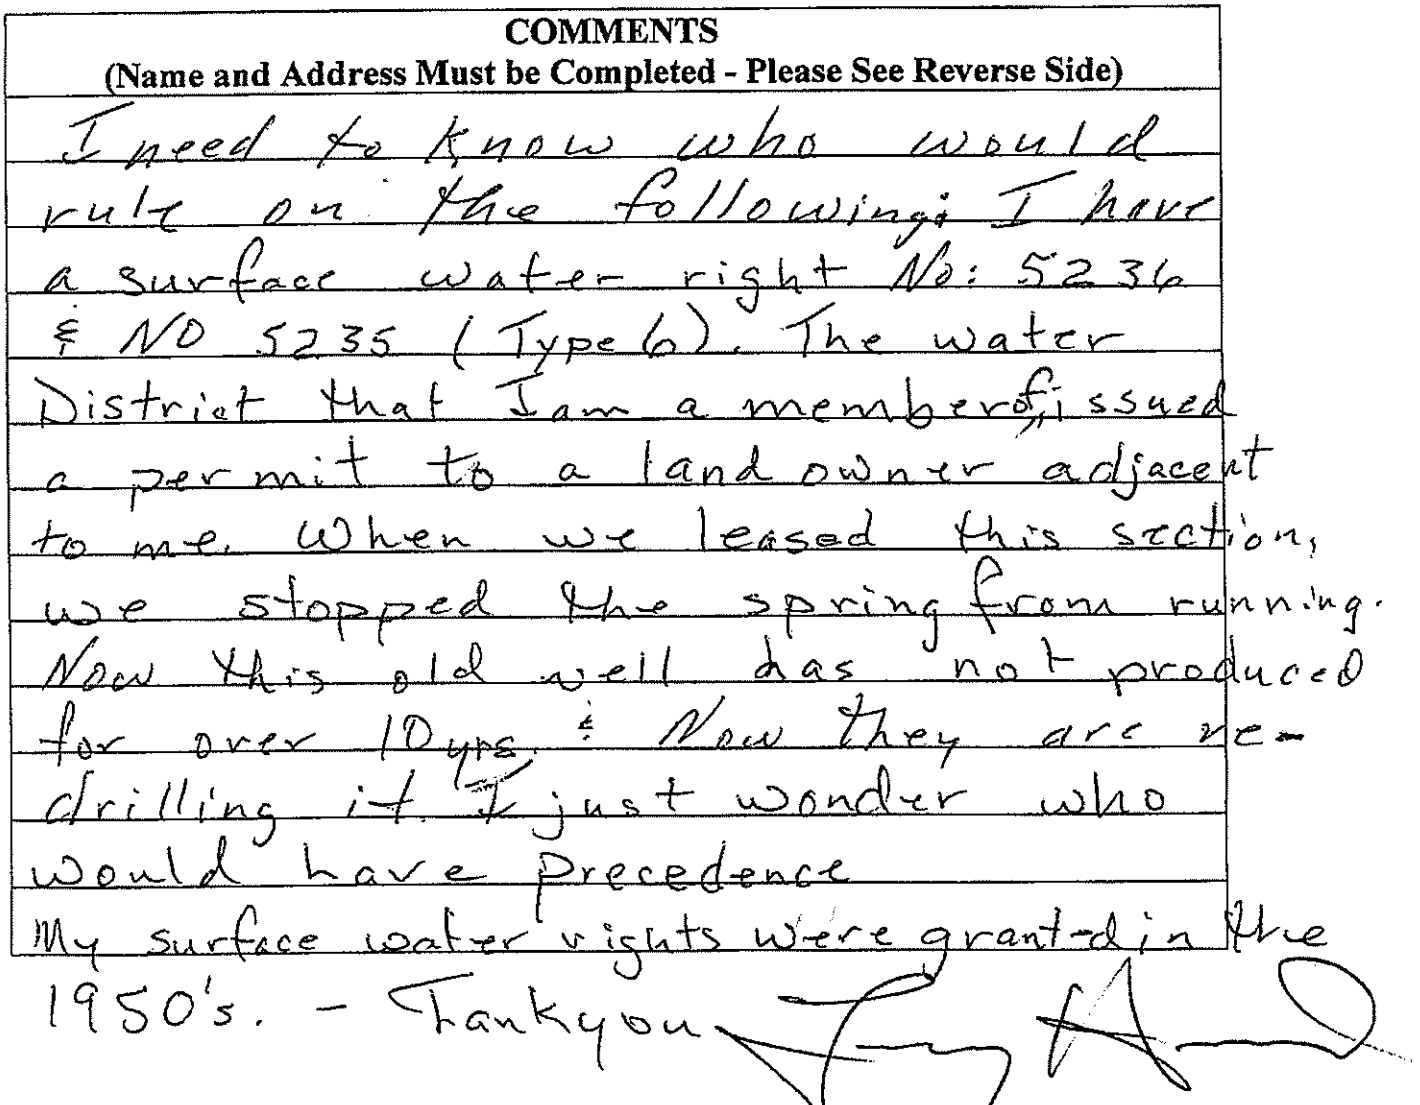 COMMENTS
(Name and Address Must be Completed - Please See Reverse Side)
I need to know who would
rule on the following; I have
a surface water right No: 5236
& NO 5235 (Type 6). The water
District that I am a member of, issued
a permit to a land owner adjacent
to me. When we leased this section,
we stopped the spring from running.
Now this old well has not produced
for over 10 yrs. & Now they are re-
drilling it. I just wonder who
would have precedence
My surface water rights were granted in the
1950's. - Tankyou